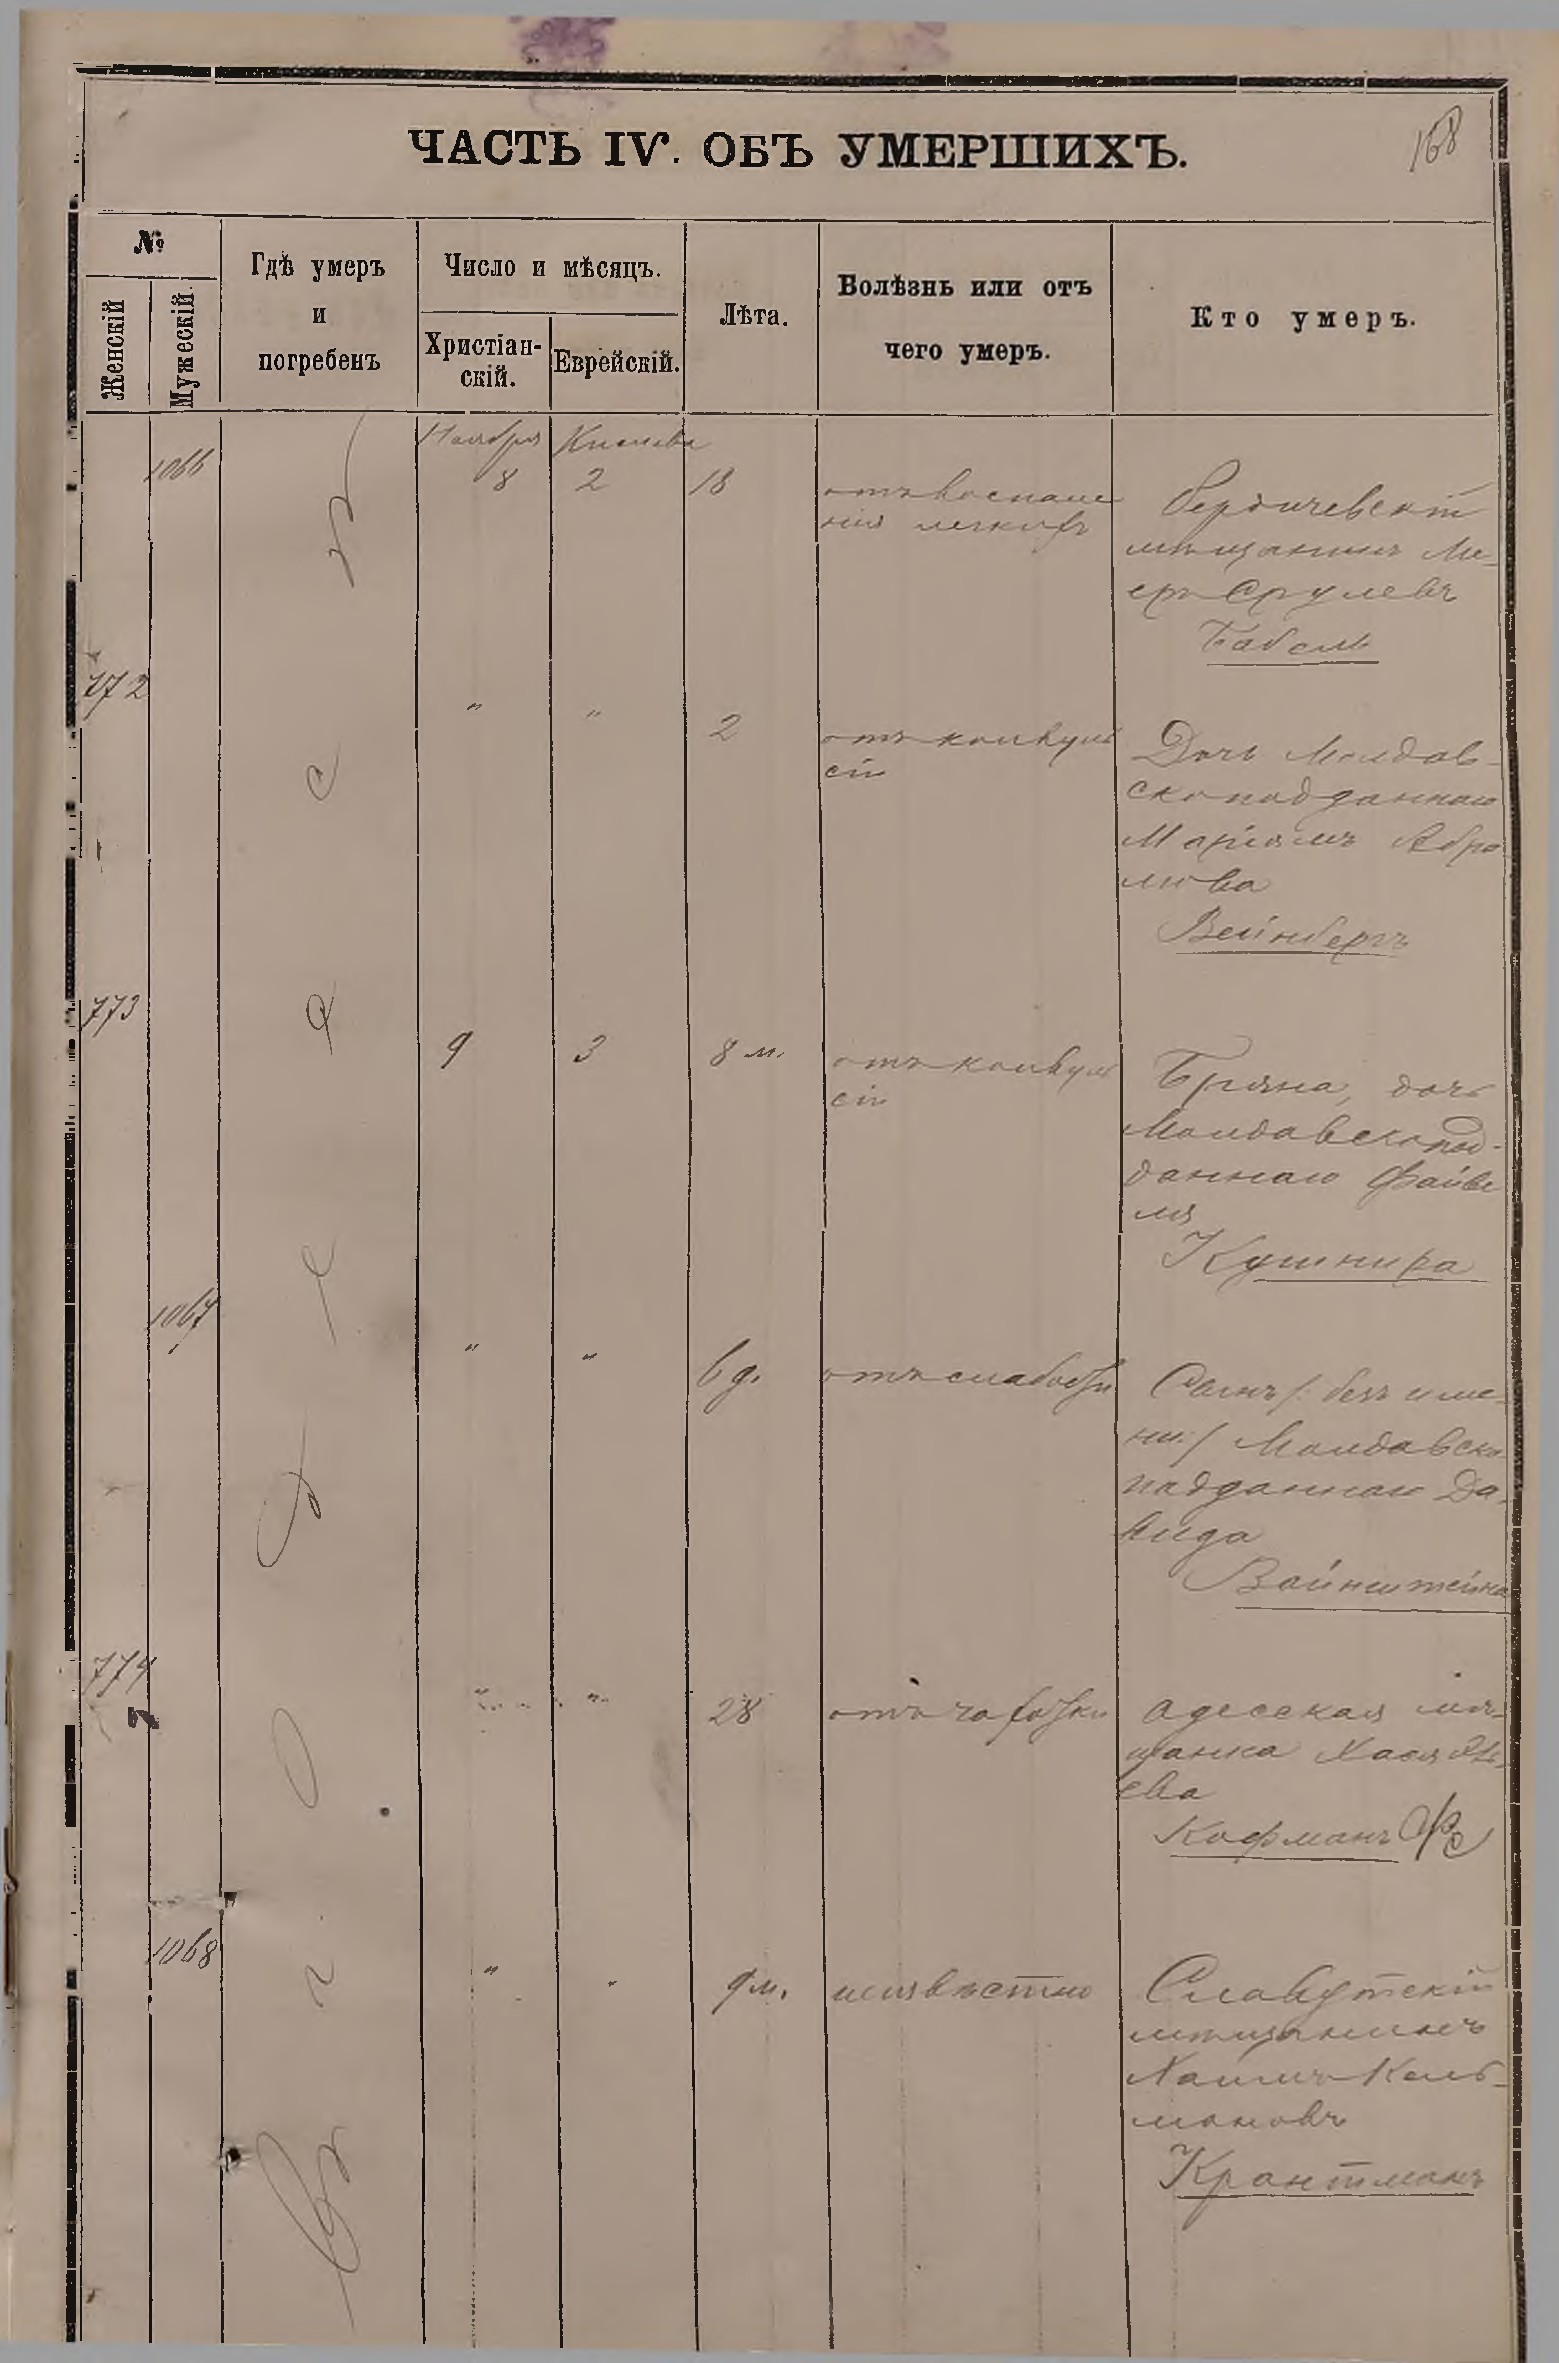 168
ЧАСТЬ IV. ОБЪ УМЕРШИХЪ.
№
Женскій
Мужескій.
Гдѣ умеръ
и
погребенъ
Число и мѣсяцъ.
Христіан-
скій.
Еврейскій.
Лѣта.
Болѣзнь или отъ
чего умеръ.
Кто умеръ.
Въ г. Одессѣ
1066
Ноября
8
Кислева
2
18
отъ воспале
нія легкихъ
Бердичевскій
мѣщанинъ Ме-
еръ Срулевъ
Бабель
772
"
"
2
отъ конвуль
сій
Дочь Молдав-
скоподданнаго
Маріямъ Абра
мова
Вейнбергъ
773
9
3
8 м.
отъ конвуль
сій
Бряна, дочь
Молдавскопод-
даннаго Файве
ля
Кушнира
1067
"
"
6 д.
отъ слабости
Сынъ /: безъ име
ни :/ Молдавско
подданнаго Да-
вида
Вайнштейна
774
"
"
28
отъ чахотки
Одесская мѣ-
щанка Хася
ева
Кофманъ
1068
"
"
9 м.
неизвѣстно
Славутскій
мѣщанинъ
Хаимъ Кель-
мановъ
Крантманъ